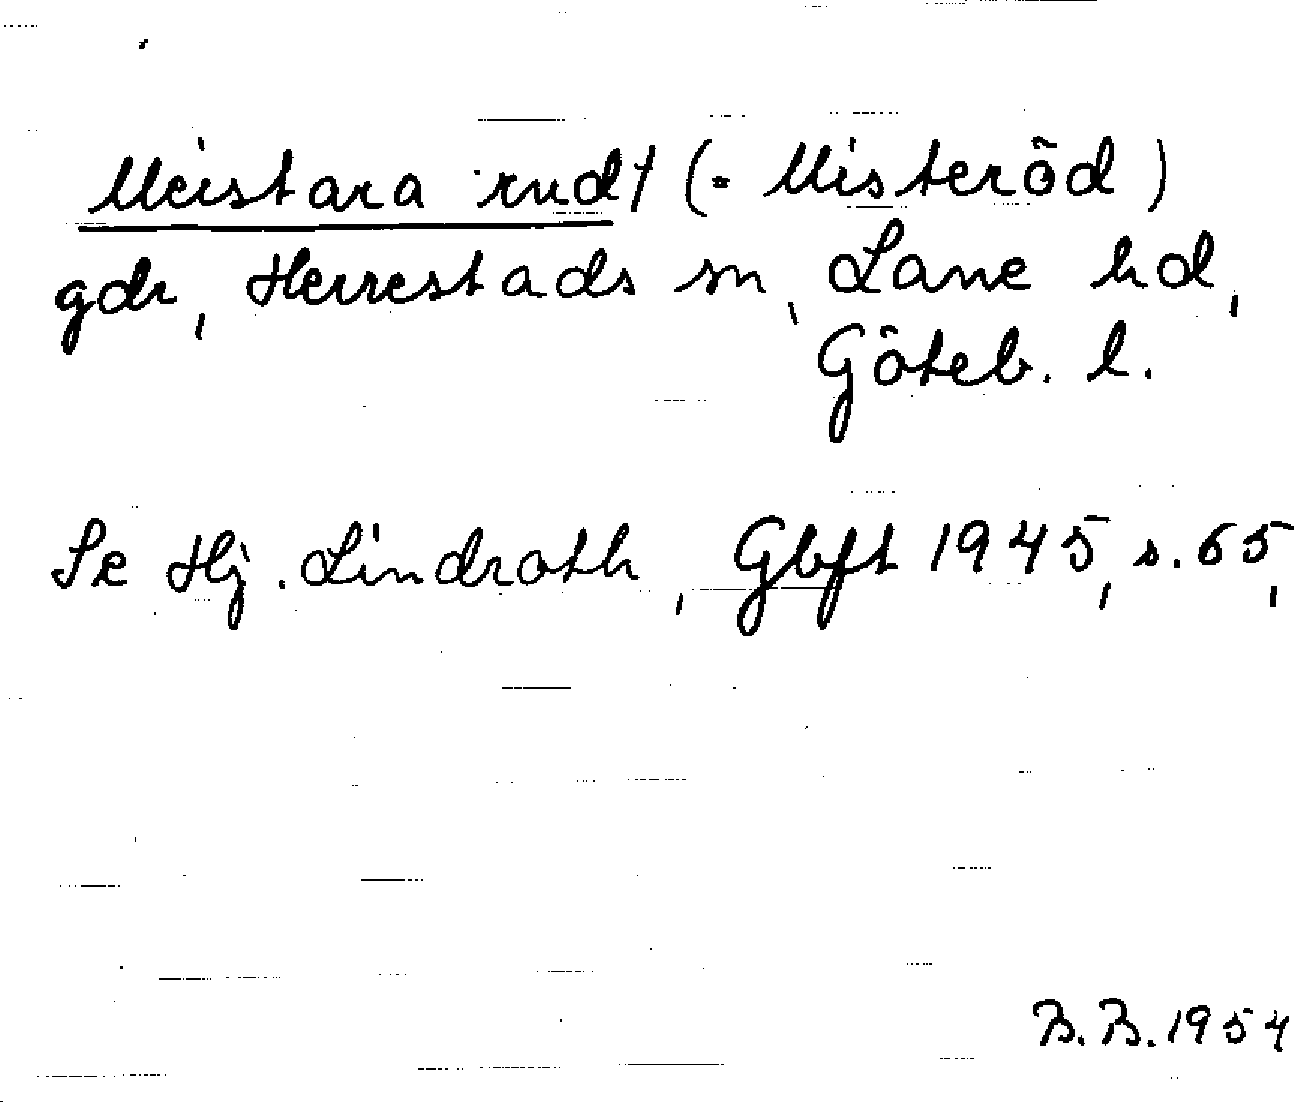 Meistara rud† (= Misteröd)
gdr, Herrestads sn, Lane hd,
Göteb. l.
Se Hj. Lindroth, Gbft 1945, s. 65,
B. B. 1954